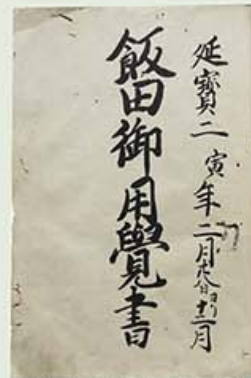 延寳二寅年二月十八日ゟ十二月
飯田御用覺書